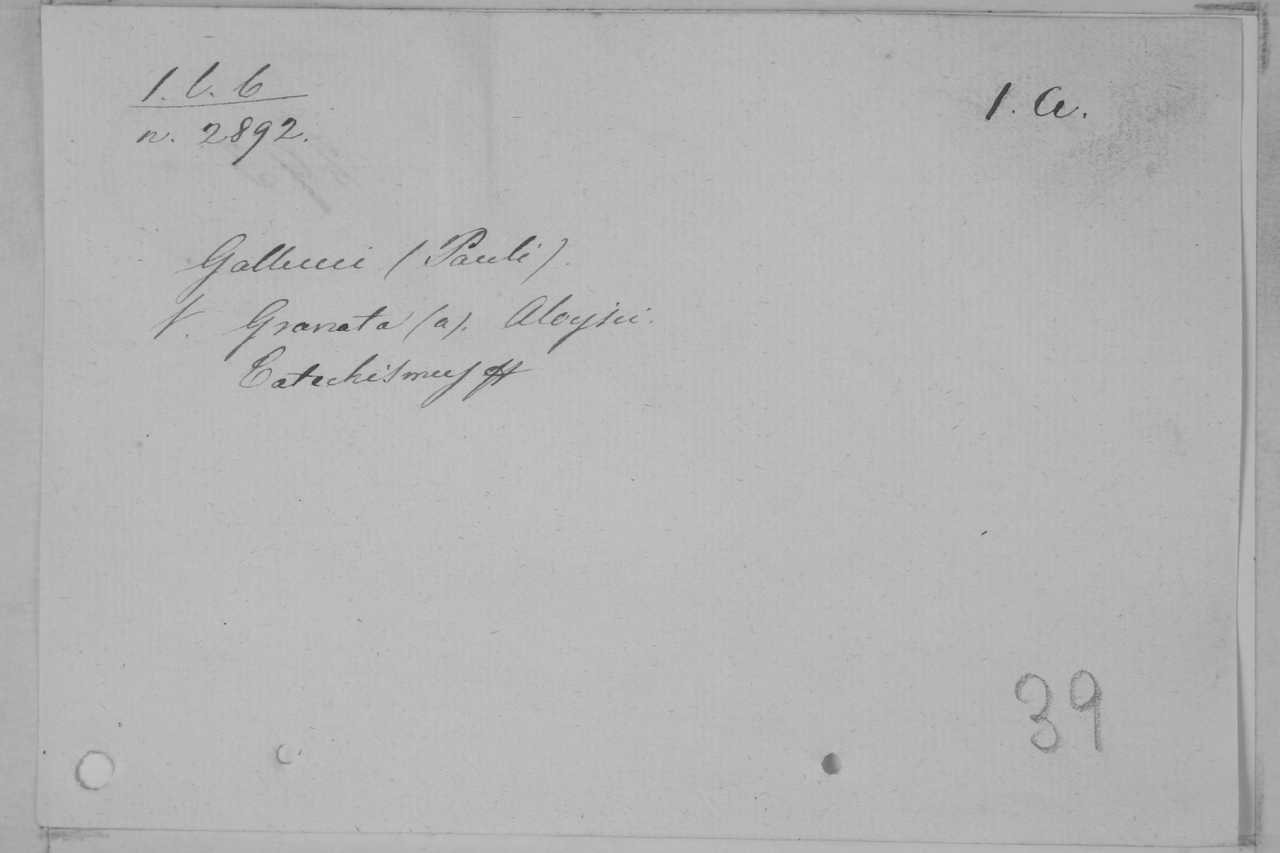 1. b. 6
1. a.
n. 2892.
Gallucci (Pauli).
V. Granata (a). Aloysii.
Catechismus
39